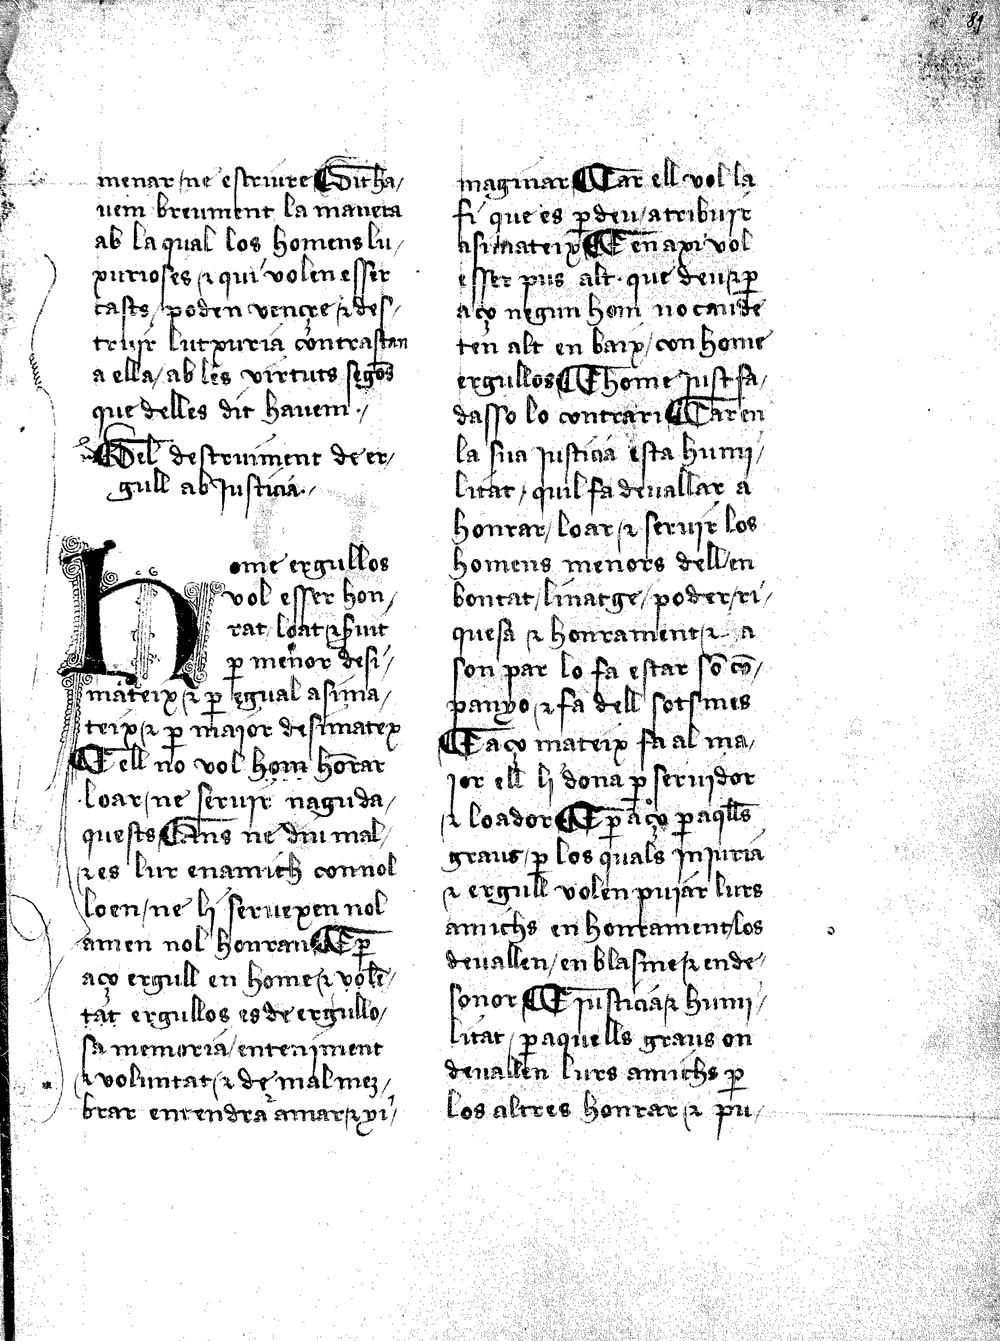 89
menar/ne escriure Dit ha/
uem breument la manera
ab la qual los homens lu/
xurioses ⁊ qui volen esser
casts/poden vençre ⁊ des/
truir luxuria contrastan
a ella/ab les virtuts segōs
que delles dit havem·/
Del destruiment de er/
gull ab justicia·/
Home ergullos
vol esser hon/
rat/loat ⁊ ßuit
ꝑ menor de si/
mateix ⁊ ꝑ egual a si ma/
teix ⁊ ꝑ major de si matex
E ell no vol hom hōrar
loar/ne seruir negu da/
quests Ans ne diu mal/
⁊ es lur enamich con nol
loen/ne li seruexen nol
amen nol honran E ꝑ
aço ergull en home ⁊ volē/
tat ergullos es de ergullo/
sa memoria/enteniment
⁊ voluntat ⁊ de mal mem/
brar entendra amar ⁊ yi/
maginar Car ell vol la
fi que es ꝑ deu/atribuir
a si mateix E en axi vol
esser pus alt·que deu ⁊ ꝑ
aço negun hom no cau de
ten alt en baix/con home
ergullos E home just fa/
dasso lo contrari Car en
la sua justicia esta humi/
litat/quil fa deuallar a
honrar/loar ⁊ seruir los
homens menors dell/en
bontat/linatge/poder/ri/
quesa ⁊ honrament ⁊ a
son par lo fa estar sō cō/
panyo ⁊ fa dell sotsmes
E aço mateix fa al ma/
jor ell li dona ꝑ seruidor
⁊ loador E ꝑ aço ꝑ aqlls
graus/ꝑ los quals injuria
⁊ ergull volen pujar lurs
amichs en honrament/los
deuallen/en blasme ⁊ en de/
sonor E justicia ⁊ humi/
litat/ꝑ aquells graus on
deuallen lurs amichs ꝑ
los altres honrar ⁊ pu/